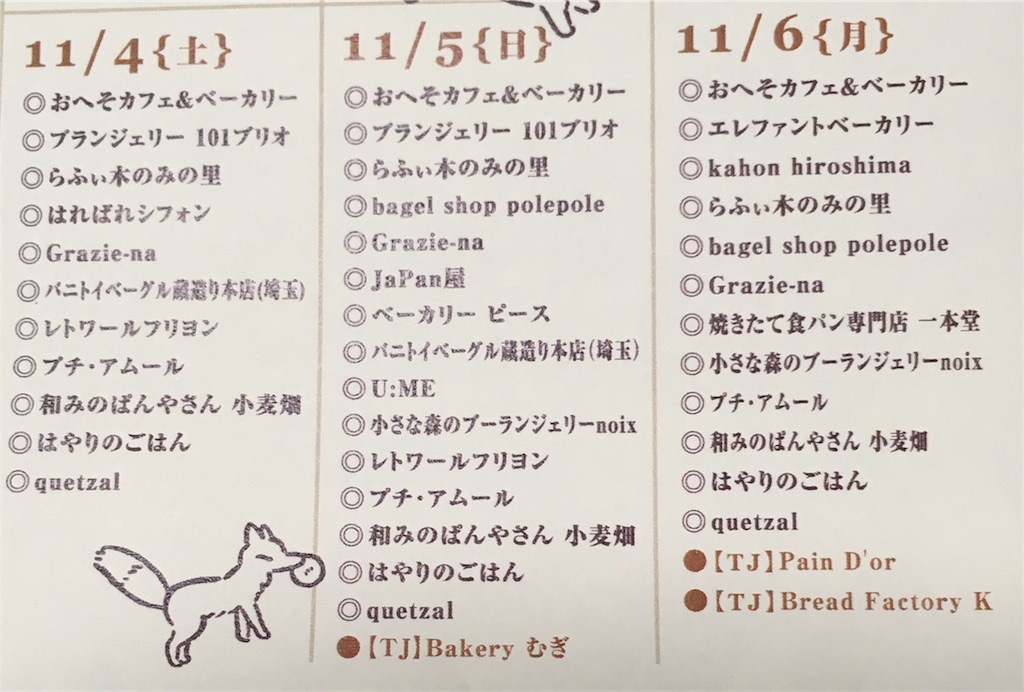 11/4{土}
◎おへそカフェ&ベーカリー
◎ブランジェリー 101ブリオ
◎らふぃ木のみの里
◎はればれシフォン
◎Grazie-na
◎バニトイベーグル蔵造り本店(埼玉)
◎レトワールフリヨン
◎プチ・アムール
◎和みのぱんやさん 小麦畑
◎はやりのごはん
◎quetzal
11/5{日}
◎おへそカフェ&ベーカリー
◎ブランジェリー 101ブリオ
◎らふぃ木のみの里
◎bagel shop polepole
◎Grazie-na
◎JaPan屋
◎ベーカリー ピース
◎バニトイベーグル蔵造り本店(埼玉)
◎U:ME
◎小さな森のブーランジェリーnoix
◎レトワールフリヨン
◎プチ・アムール
◎和みのぱんやさん 小麦畑
◎はやりのごはん
◎quetzal
●【TJ】Bakery むぎ
11/6{月}
◎おへそカフェ&ベーカリー
◎エレファントベーカリー
◎kahon hiroshima
◎らふぃ木のみの里
◎bagel shop polepole
◎Grazie-na
◎焼きたて食パン専門店 一本堂
◎小さな森のブーランジェリーnoix
◎プチ・アムール
◎和みのぱんやさん 小麦畑
◎はやりのごはん
◎quetzal
●【TJ】Pain D'or
●【TJ】Bread Factory K